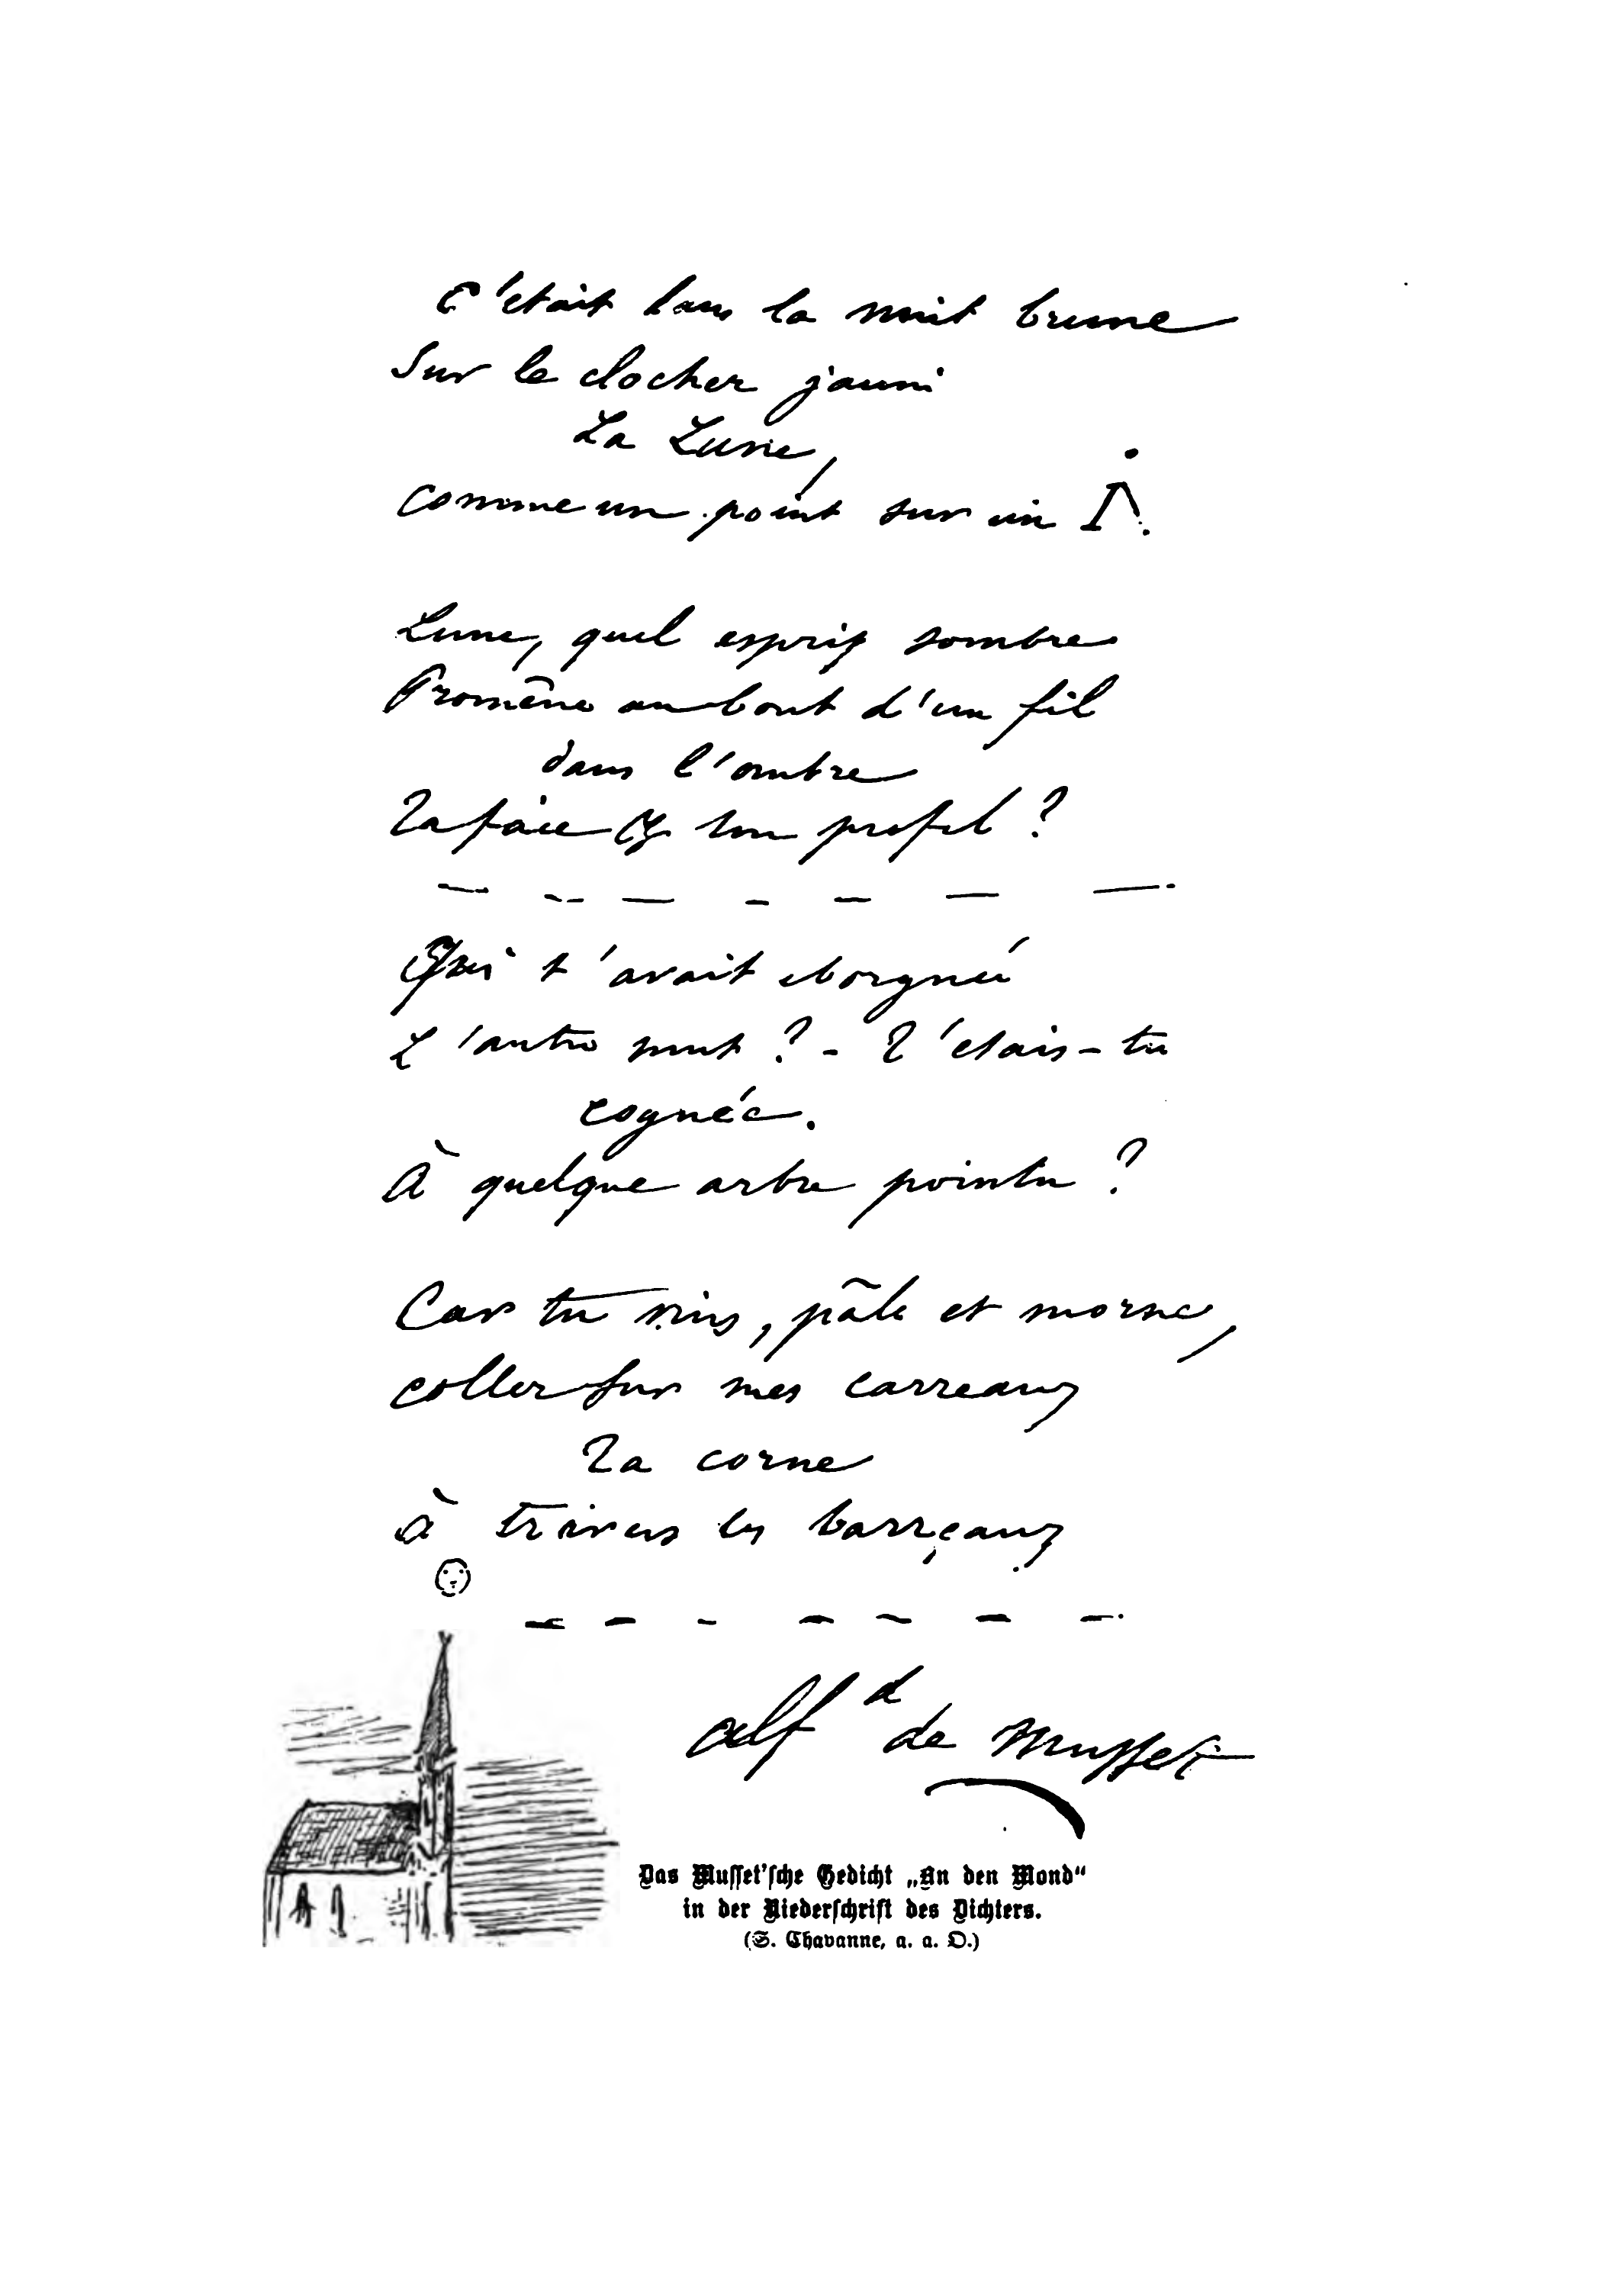 C'était dans la nuit brune
Sur le clocher jauni
La Lune,
comme un point sur un I.
Lune, quel esprit sombre
Promène au bout d'un fil
dans l'ombre
Ta face & ton profil ?
Qui t'avait eborgnée
L'autre nuit ? - T'étais-tu
cognée.
À quelque arbre pointu ?
Car tu vins, pâle et morne,
coller sur mes carreaux
Ta corne
à travers les barreaux
Alf d de Musset
Das Musset'sche Gedicht „An den Mond“
in der Niederschrift des Dichters.
(S. Chavanne, a. a. O.)